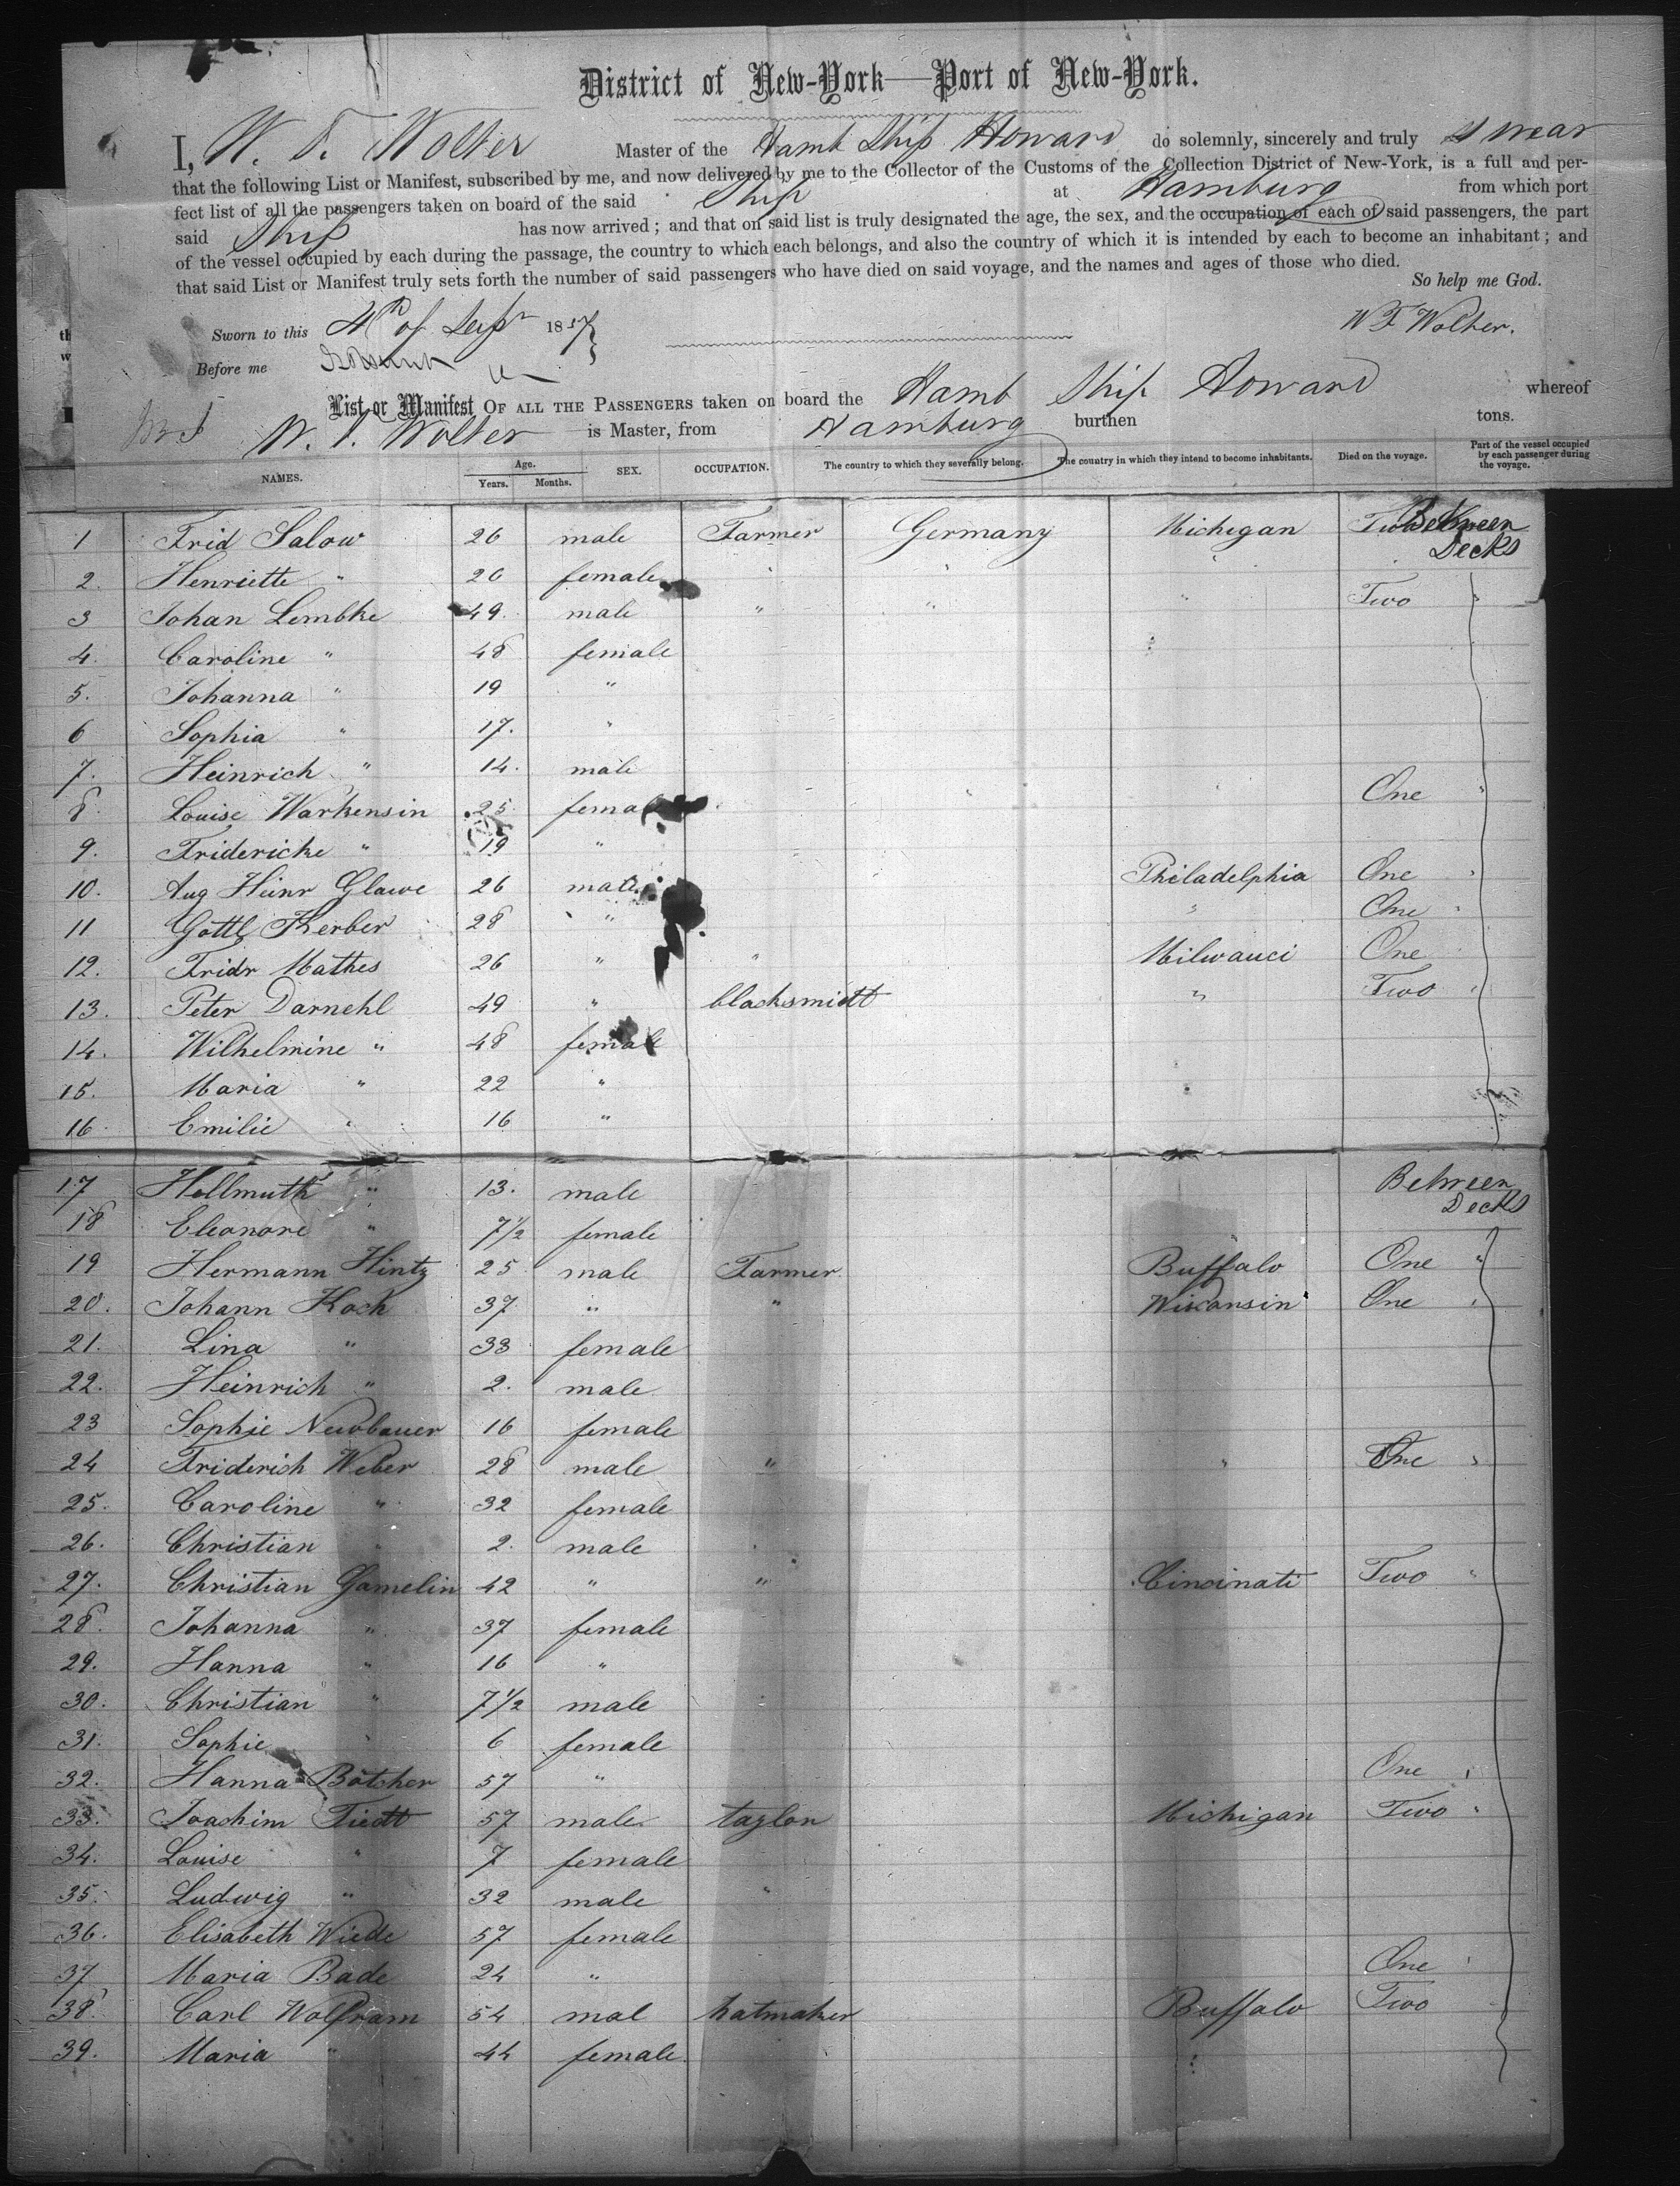 District of New-York—Port of New-York.
I, W. F. Wolter Master of the Hamb Ship Howard do solemnly, sincerely and truly swear
that the following List or Manifest, subscribed by me, and now delivered by me to the Collector of the Customs of the Collection District of New-York, is a full and per-
fect list of all the passengers taken on board of the said Ship at Hamburg from which port
said Ship has now arrived; and that on said list is truly designated the age, the sex, and the occupation of each of said passengers, the part
of the vessel occupied by each during the passage, the country to which each belongs, and also the country of which it is intended by each to become an inhabitant; and
that said List or Manifest truly sets forth the number of said passengers who have died on said voyage, and the names and ages of those who died.
So help me God.
Sworn to this 4th of Sept 1857 W F Wolter.
Before me
List or Manifest OF ALL THE PASSENGERS taken on board the Hamb Ship Howard whereof
W. F. Wolter is Master, from Hamburg burthen tons.
NAMES. Age. Years. Months. SEX. OCCUPATION. The country to which they severally belong. The country in which they intend to become inhabitants. Died on the voyage. Part of the vessel occupied by each passenger during the voyage.
1 Frid Salow 26 male Farmer Germany Michigan Two Between Decks
2. Henriette " 26 female " "
3 Johan Lembke 49. male " " " Two "
4. Caroline " 48 female
5. Johanna " 19 "
6 Sophia " 17. "
7. Heinrich " 14. male
8. Louise Warkensin 25 female One "
9. Fridericke " 19 "
10. Aug Heinr Glawe 26 male Philadelphia One "
11 Gottl Kerber 28 " " One "
12. Fridr Mathes 26 " " Milwauci One
13. Peter Darnehl 49 " blacksmidt " Two "
14. Wilhelmine " 48 female
15. Maria " 22 "
16. Emilie " 16 "
17 Hellmuth " 13. male Between Decks
18 Eleonore " 7 1/2 female
19 Hermann Hintz 25 male Farmer Buffalo One "
20. Johann Koch 37 " " Wisconsin One "
21. Lina " 33 female
22. Heinrich " 2. male
23 Sophie Newbauer 16 female
24 Friderich Weber 28 male " " One "
25. Caroline " 32 female
26. Christian " 2. male
27. Christian Gamelin 42 " " Cincinati Two "
28. Johanna " 37 female
29. Hanna " 16 "
30. Christian " 7 1/2 male
31. Sophie " 6 female
32. Hanna Bötcher 57 " One "
33. Joachim Tiedt 57 male taylor Michigan Two "
34. Louise " 7 female
35. Ludwig " 32 male "
36. Elisabeth Wiede 57 female
37 Maria Bade 24 " One "
38. Carl Wolfram 54 mal hatmaker Buffalo Two
39. Maria " 44 female